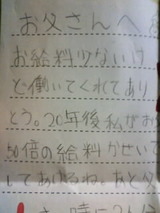 お父さんへ
お給料少ないけ
ど働いてくれてあり
とう。20年後私がお
50倍の給料かせいで
してあげるね。あと少